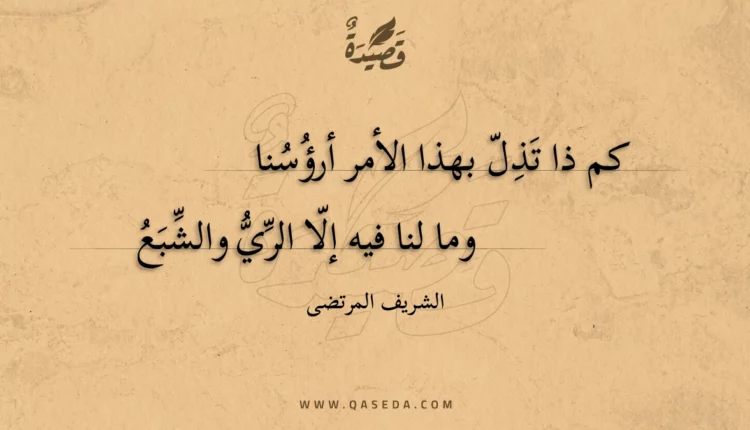 قَصِيْدَةٌ
كم ذا تَذِلّ بهذا الأمر أرؤُسُنا
وما لنا فيه إلّا الرِّيُّ والشِّبَعُ
الشريف المرتضى
WWW.QASEDA.COM